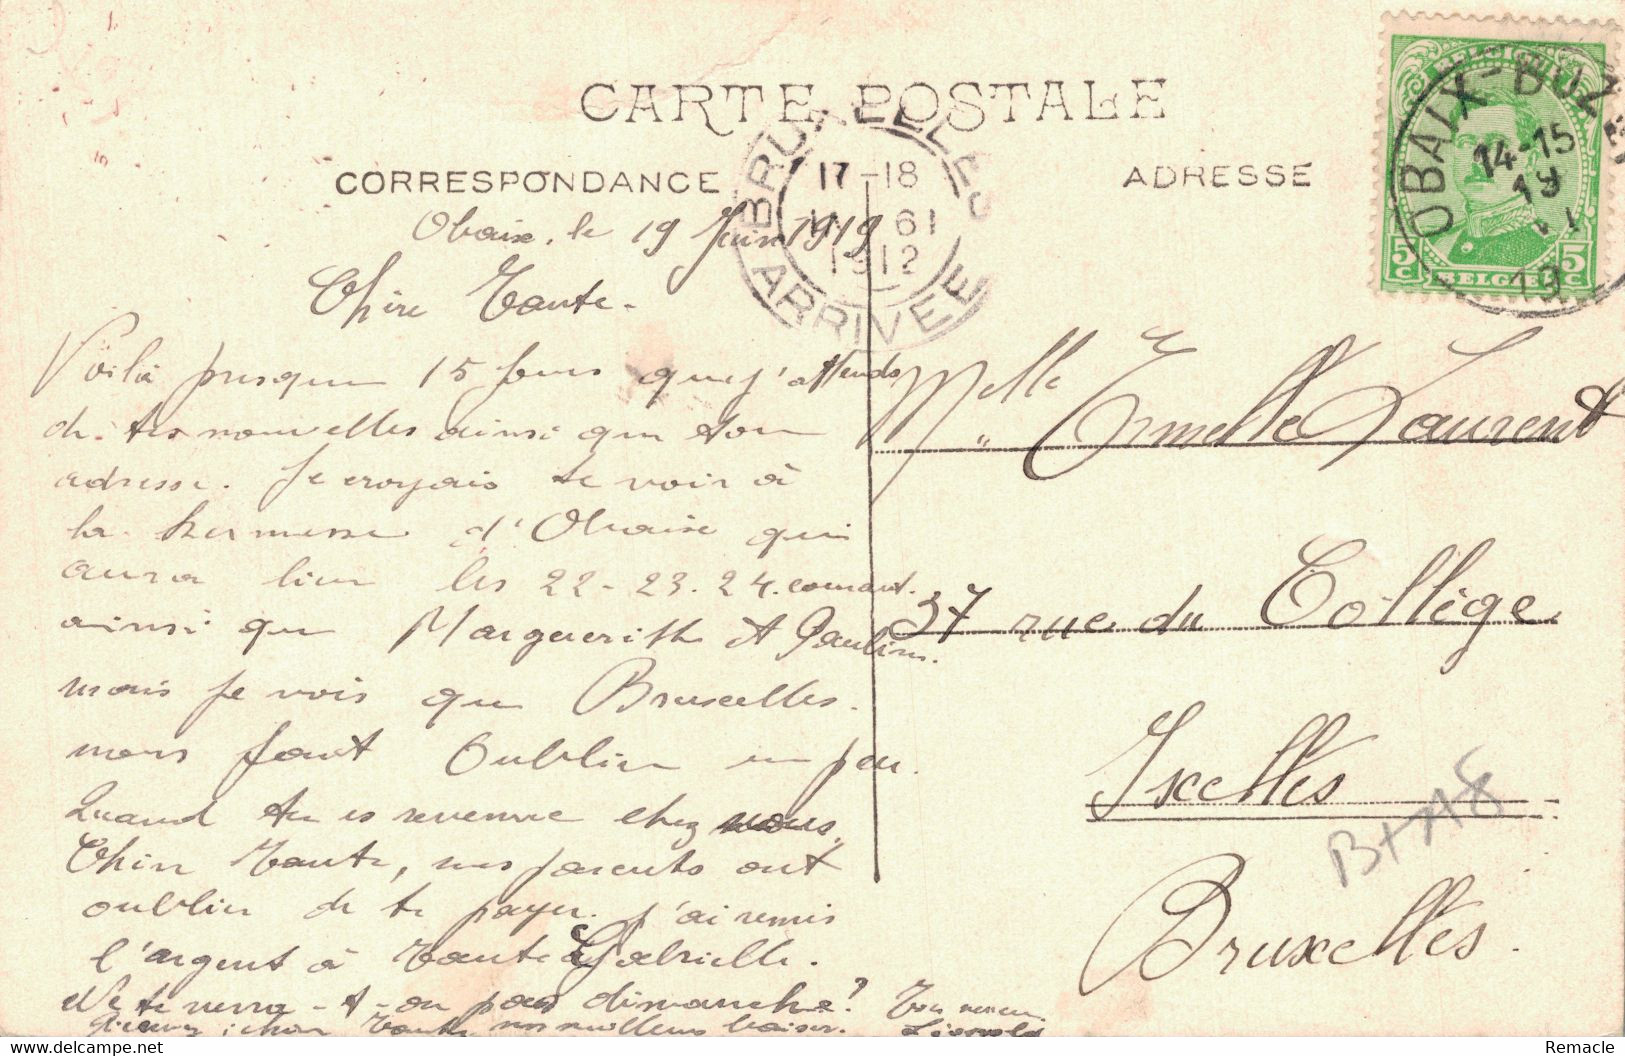 CARTE POSTALE
CORRESPONDANCE
ADRESSE
BRUXELLES
17-18
1912
ARRIVEE
OBAIX-BUZET
14-15
19
19
BELGIQUE
5c BELGIE 5c
Obaix, le 19 Juin 1919
Chère Tante.
Voilà presque 15 jours que j'attends
de tes nouvelles ainsi que ton
adresse. Je croyais te voir à
la kermesse d'Obaix qui
aura lieu les 22-23.24. courant.
ainsi que Marguerithe et Pauline.
mais je vois que Bruxelles.
nous fait oublier un peu.
Quand tu es revenue chez nous,
Chère Tante, mes parents ont
oublier de te payer. j'ai remis
l'argent à Tante Gabrielle.
Ne te verra-t-on pas dimanche? Ton neveu
chère Tante nos meilleurs baiser. Léopold
Melle Ermelle Laurent
37 rue du Collège
Ixelles
Bruxelles.
Remacle